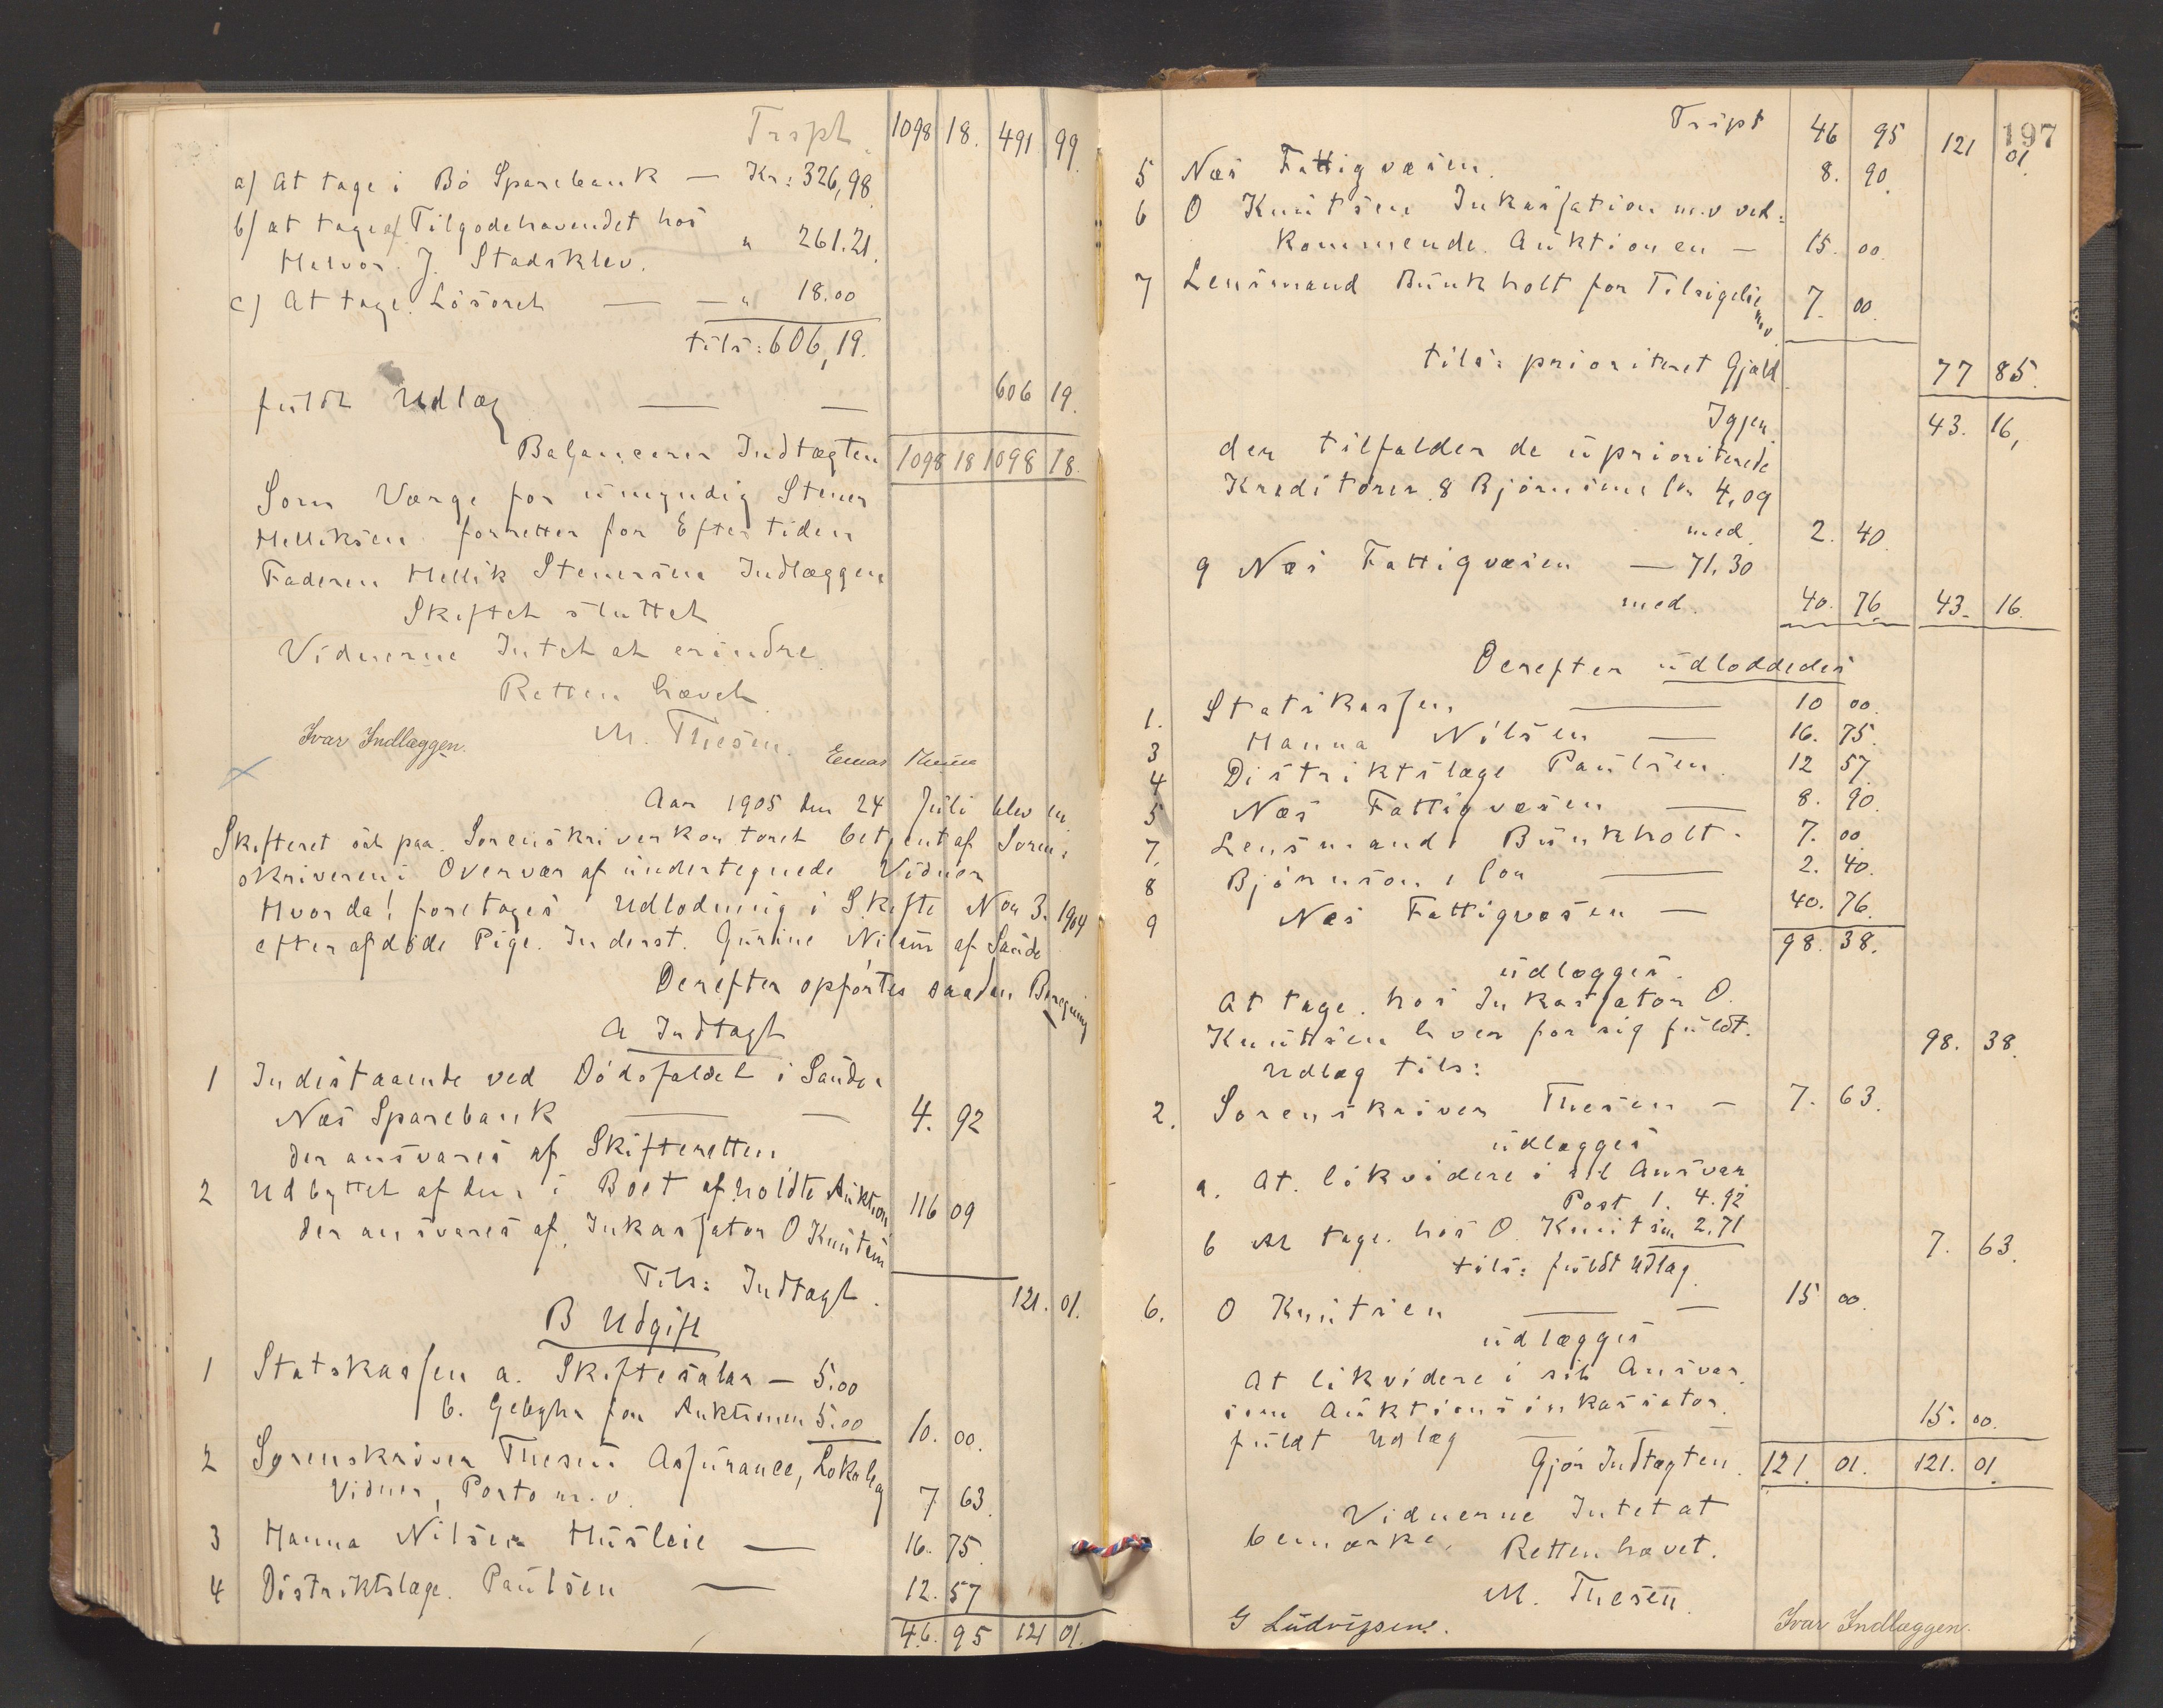 Trspt. 1098 18. 491 99
a) At tage i Bö Sparebank — Kr: 326,98.
b) at tage af Tilgodehavendet hos
Halvor J. Stadsklev. " 261.21.
c) At tage Lösöret — — " 18.00
tils: 606,19.
fuldt Udlæg — — 606 19.
Balancerer Indtægten 1098 18 1098 18.
Som Værge for umyndig Stener
Helliksen forretter for Eftertiden
Faderen Hellik Stenersen Indlæggen
Skiftet sluttet
Vidnerne Intet at erindre.
Retten hævet.
M. Thesen.
Ivar Indlæggen.
Aar 1905 den 24 Juli blev en
Skifteret sat paa Sorenskriverkontoret betjent af Soren-
skriveren i Overvær af undertegnede Vidner
Hvor da! foretages Udlodning i Skifte No 3. 1904
efter afdöde Pige Inderst. Gurine Nilsen af Saude
Derefter opförtes saadan Beregning
A Indtægt
1 Indestaaende ved Dödsfaldet i Saude &
Næs Sparebank — — 4. 92
der ansvares af Skifteretten
2 Udbyttet af den i Boet afholdte Auktion 116 09
der ansvares af Inkassator O Knutsen
Tils: Indtægt. 121. 01.
B Udgift
1 Statskassen a. Skiftesalær — 5.00
b. Gebyhr for Auktionen 5.00 10. 00.
2 Sorenskriver Thesen Assurance, Lokale
Vidner, Porto m.v. 7 63.
3 Hanna Nilsen Husleie — 16. 75.
4 Distriktslæge Paulsen — 12. 57
46. 95 121 01.
197
Tript 46 95 121 01.
5 Næs Fattigvæsen. 8. 90.
6 O Knutsen Inkassation m.v ved-
kommende Auktionen — 15. 00.
7 Lensmand Bunkholt for Tilsigelse m.v 7. 00.
tils: prioriteret Gjæld 77 85.
Igjen 43. 16,
der tilfalder de uprioriterede
Kreditorer 8 Björnson & Co 4,09
med 2. 40.
9 Næs Fattigvæsen — 71.30
med. 40. 76. 43. 16.
Derefter udloddedes
1. Statskassen — 10 00.
3 Hanna Nilsen — 16. 75.
4 Distriktslæge Paulsen. 12 57.
5 Næs Fattigvæsen — 8. 90.
7. Lensmand Bunkholt. 7. 00.
8 Björnson & Co — 2. 40.
9 Næs Fattigvæsen — 40. 76.
98. 38.
udlægges.
At tage hos Inkassator O.
Knutsen hver for sig fuldt.
Udlæg tils: 98. 38.
2. Sorenskriver Thesen — 7. 63.
udlægges
a. At likvidere i sit Ansvar
Post 1. 4.92
b At tage hos O. Knutsen 2.71
tils: fuldt Udlæg. 7. 63.
6. O Knutsen — — 15 00.
udlægges
At likvidere i sit Ansvar.
som Auktionsinkassator.
fuldt Udlæg — — 15. 00.
Gjör Indtægten. 121. 01. 121. 01.
Vidnerne Intet at
bemærke. Retten hævet.
M. Thesen.
G Ludvigsen.
Ivar Indlæggen.